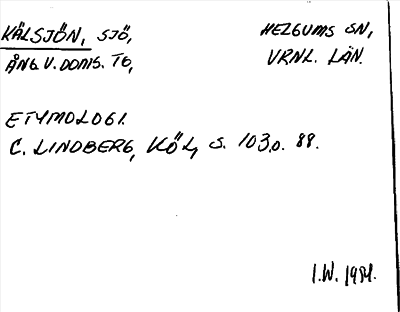 KÄLSJÖN, SJÖ, HELGUMS SN,
ÅNG. V. DOMS. TG, VRNL. LÄN.
ETYMOLOGI.
C. LINDBERG, KÖL, S. 103,0. 88.
I.W. 1984.